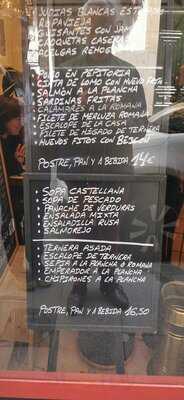 JUDIAS BLANCAS ESTOFADAS
ROPAVIEJA
GUISANTES CON JAMON
CROQUETAS CASERAS
ACELGAS REHOGADAS
POLLO EN PEPITORIA
CINTA DE LOMO CON HUEVO FRITO
SALMÓN A LA PLANCHA
SARDINAS FRITAS
CALAMARES A LA ROMANA
FILETE DE MERLUZA ROMANA
ESCALOPE DE LA CASA
FILETE DE HÍGADO DE TERNERA
HUEVOS FITOS CON
POSTRE, PAN Y 1 BEBIDA 14€
SOPA CASTELLANA
SOPA DE PESCADO
PANACHE DE VERDURAS
ENSALADA MIXTA
ENSALADILLA RUSA
SALMOREJO
TERNERA ASADA
ESCALOPE DE TERNERA
SEPIA A LA PLANCHA O ROMANA
EMPERADOR A LA PLANCHA
CHIPIRONES A LA PLANCHA
POSTRE, PAN Y 1 BEBIDA 16,50